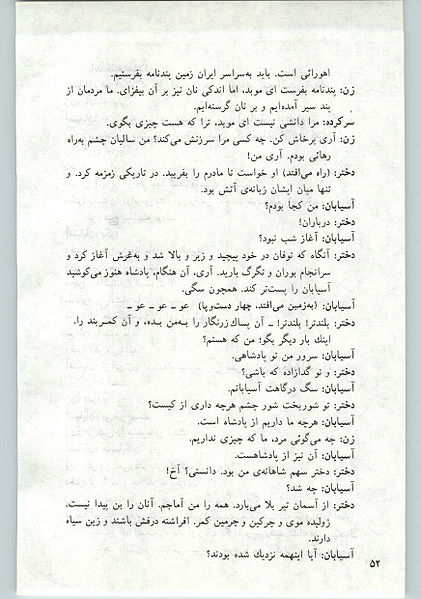 اهورائی است. باید به‌سراسر ایران زمین پندنامه بفرستیم.
زن: پندنامه بفرست ای موبد، اما اندکی نان نیز بر آن بیفزای. ما مردمان از
پند سیر آمده‌ایم و بر نان گرسنه‌ایم.
سرکرده: مرا دانشی نیست ای موبد، ترا که هست چیزی بگوی.
زن: آری پرخاش کن. چه کسی مرا سرزنش می‌کند؟ من سالیان چشم به‌راه
رهائی بودم. آری من!
دختر: (راه می‌افتد) او خواست تا مادرم را بفریبد. در تاریکی زمزمه کرد. و
تنها میان ایشان زبانه‌ی آتش بود.
آسیابان: من کجا بودم؟
دختر: درباران!
آسیابان: آغاز شب نبود؟
دختر: آنگاه که توفان در خود پیچید و زیر و بالا شد و به‌غرش آغاز کرد و
سرانجام بوران و تگرگ بارید. آری، آن هنگام، پادشاه هنوز می‌کوشید
آسیابان را پست‌تر کند. همچون سگی.
آسیابان: (به‌زمین می‌افتد، چهار دست‌وپا) عو ــ عو ــ عو ــ
دختر: بلندتر! بلندتر! ــ آن پساك زرنگار را به‌من بده، و آن کمربند را.
اینك بار دیگر بگو؛ من که هستم؟
آسیابان: سرور من تو پادشاهی.
دختر: و تو گدازاده که باشی؟
آسیابان: سگ درگاهت آسیابانم.
دختر: تو شوربخت شور چشم هرچه داری از کیست؟
آسیابان: هرچه ما داریم از پادشاه است.
زن: چه می‌گوئی مرد، ما که چیزی نداریم.
آسیابان: آن نیز از پادشاهست.
دختر: دختر سهم شاهانه‌ی من بود. دانستی؟ آخ!
آسیابان: چه شد؟
دختر: از آسمان تیر بلا می‌بارد. همه را من آماجم. آنان را بن پیدا نیست.
ژولیده موی و چرکین و چرمین کمر. افراشته درفش باشند و زین سیاه
دارند.
آسیابان: آیا اینهمه نزدیك شده بودند؟
۵۲